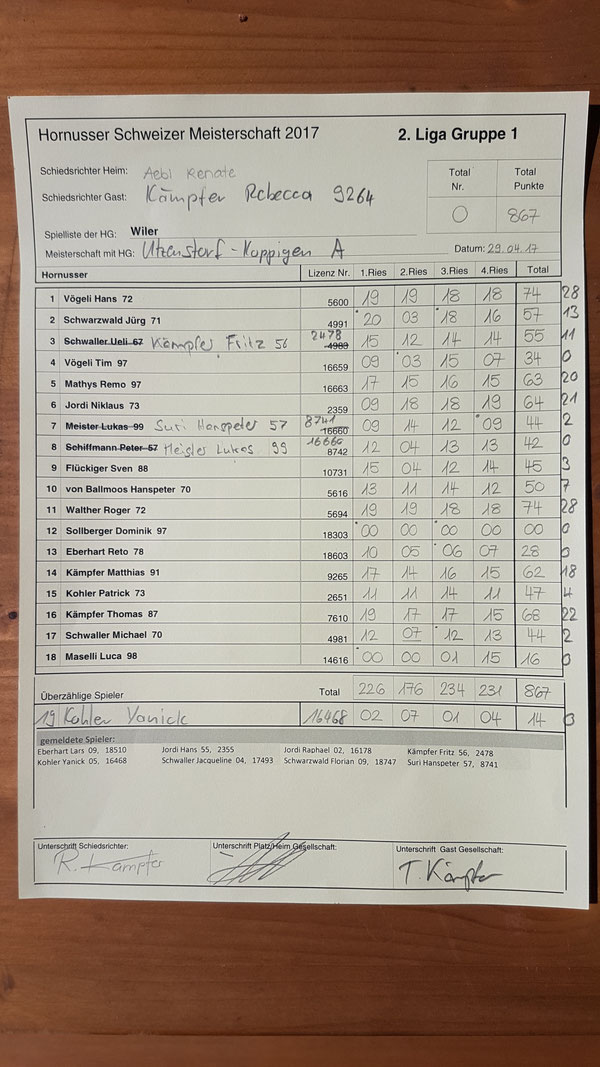 Hornusser Schweizer Meisterschaft 2017 2. Liga Gruppe 1
Schiedsrichter Heim: Aebi Renate Total Nr. Total Punkte
Schiedsrichter Gast: Kämpfer Rebecca 9264 0 867
Spielliste der HG: Wiler
Meisterschaft mit HG: Utzenstorf - Koppigen A Datum: 29.04.17
Hornusser Lizenz Nr. 1.Ries 2.Ries 3.Ries 4.Ries Total
1 Vögeli Hans 72 5600 19 19 18 18 74 28
2 Schwarzwald Jürg 71 4991 20 03 18 16 57 13
3 Schwaller Ueli 67 Kämpfer Fritz 56 2478 4983 15 12 14 14 55 11
4 Vögeli Tim 97 16659 09 03 15 07 34 0
5 Mathys Remo 97 16663 17 15 16 15 63 20
6 Jordi Niklaus 73 2359 09 18 18 19 64 21
7 Meister Lukas 99 Suri Hanspeter 57 8741 16660 09 14 12 09 44 2
8 Schiffmann Peter 57 Meister Lukas 99 16660 8742 12 04 13 13 42 0
9 Flückiger Sven 88 10731 15 04 12 14 45 3
10 von Ballmoos Hanspeter 70 5616 13 11 14 12 50 7
11 Walther Roger 72 5694 19 19 18 18 74 28
12 Sollberger Dominik 97 18303 00 00 00 00 00 0
13 Eberhart Reto 78 18603 10 05 06 07 28 0
14 Kämpfer Matthias 91 9265 17 14 16 15 62 18
15 Kohler Patrick 73 2651 11 11 14 11 47 4
16 Kämpfer Thomas 87 7610 19 17 17 15 68 22
17 Schwaller Michael 70 4981 12 07 12 13 44 2
18 Maselli Luca 98 14616 00 00 01 15 16 0
Überzählige Spieler Total 226 176 234 231 867
19 Kohler Yanick 16468 02 07 01 04 14 0
gemeldete Spieler:
Eberhart Lars 09, 18510 Jordi Hans 55, 2355 Jordi Raphael 02, 16178 Kämpfer Fritz 56, 2478
Kohler Yanick 05, 16468 Schwaller Jacqueline 04, 17493 Schwarzwald Florian 09, 18747 Suri Hanspeter 57, 8741
Unterschrift Schiedsrichter: Unterschrift Platz/Heim Gesellschaft: Unterschrift Gast Gesellschaft:
R. Kämpfer T. Kämpfer